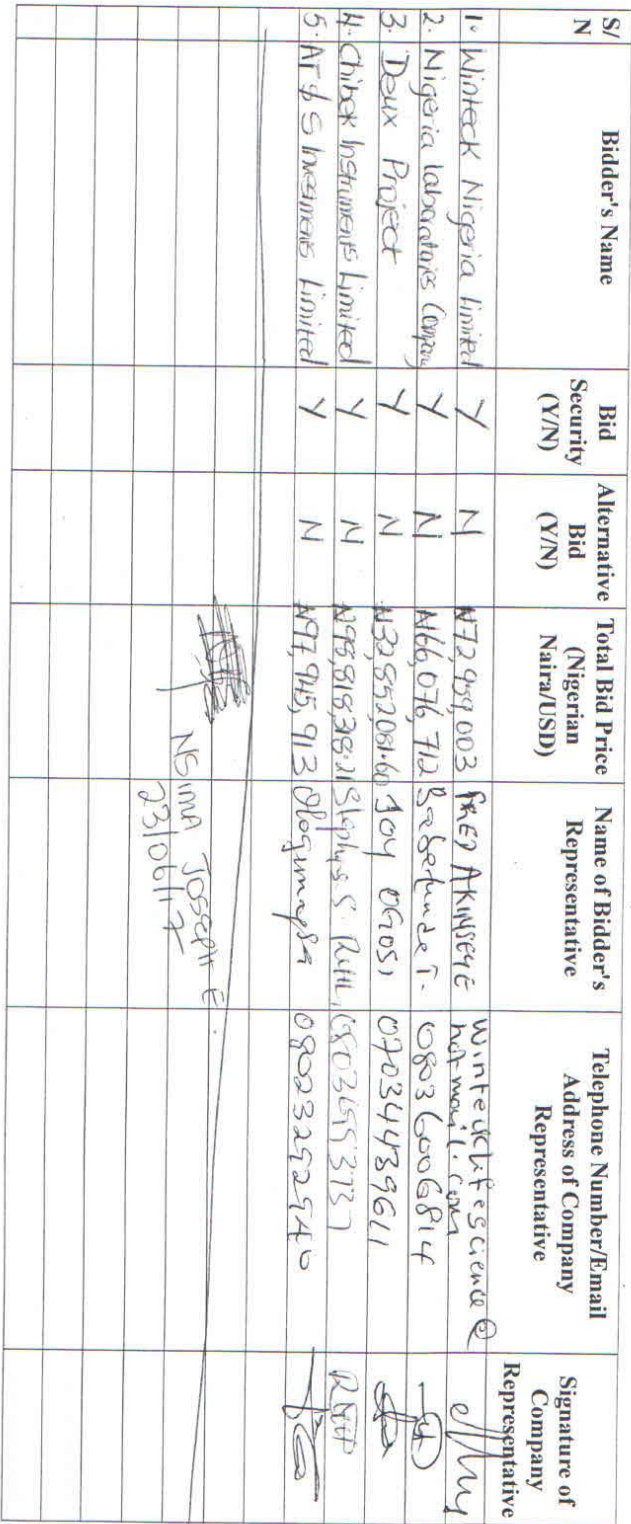 S/N
Bidder's Name
Bid Security (Y/N)
Alternative Bid (Y/N)
Total Bid Price (Nigerian Naira/USD)
Name of Bidder's Representative
Telephone Number/Email Address of Company Representative
Signature of Company Representative
1. Winteck Nigeria Limited Y N ₦72,959,003 FRED AKINSEYE wintecklifescience@
hotmail.com
2. Nigeria laboratories Company Y N ₦66,076,712 Babatunde T. 08036006814
3. Deux Project Y N JOY OGOSI 07034439611
4. Chibek Instruments Limited Y N
5. AT & S Investments Limited Y N ₦97,945,913
NSIMA JOSEPH E.
23/06/17